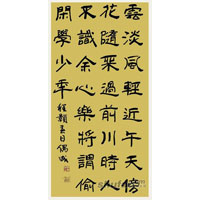 雲淡風輕近午天傍
花隨柳過前川時人
不識余心樂將謂偷
閑學少年
程顥春日偶成